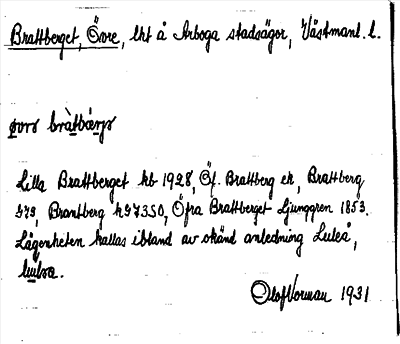 Brattberget, Övre, lht å Arboga stadsägor, Västmanl. l.
Lilla Brattberget kb 1928, Öf. Brattberg ek, Brattberg
Brantberg Öfra Brattberget Ljunggren 1853.
Lägenheten kallas ibland av okänd anledning Luleå,
Olof Vorman 1931